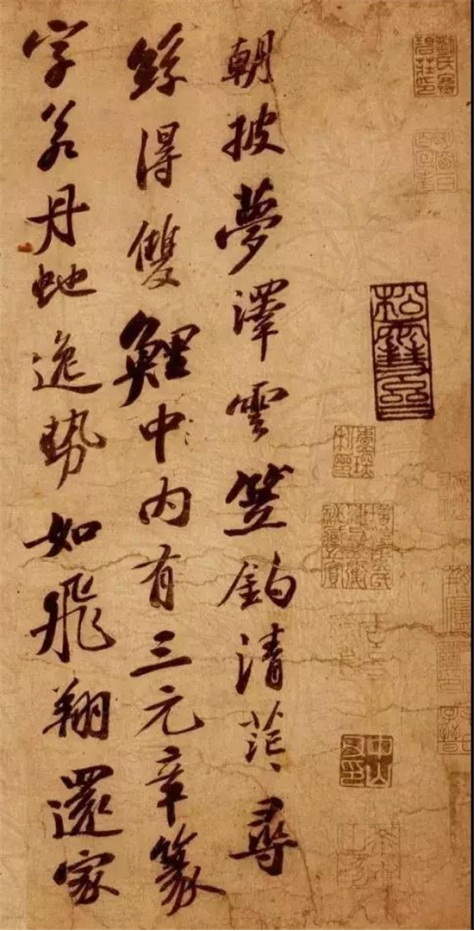 松雪齋
朝披夢澤雲笠釣清茫〻尋
絲得雙鯉中内有三元章篆
字若丹虵逸勢如飛翔還家